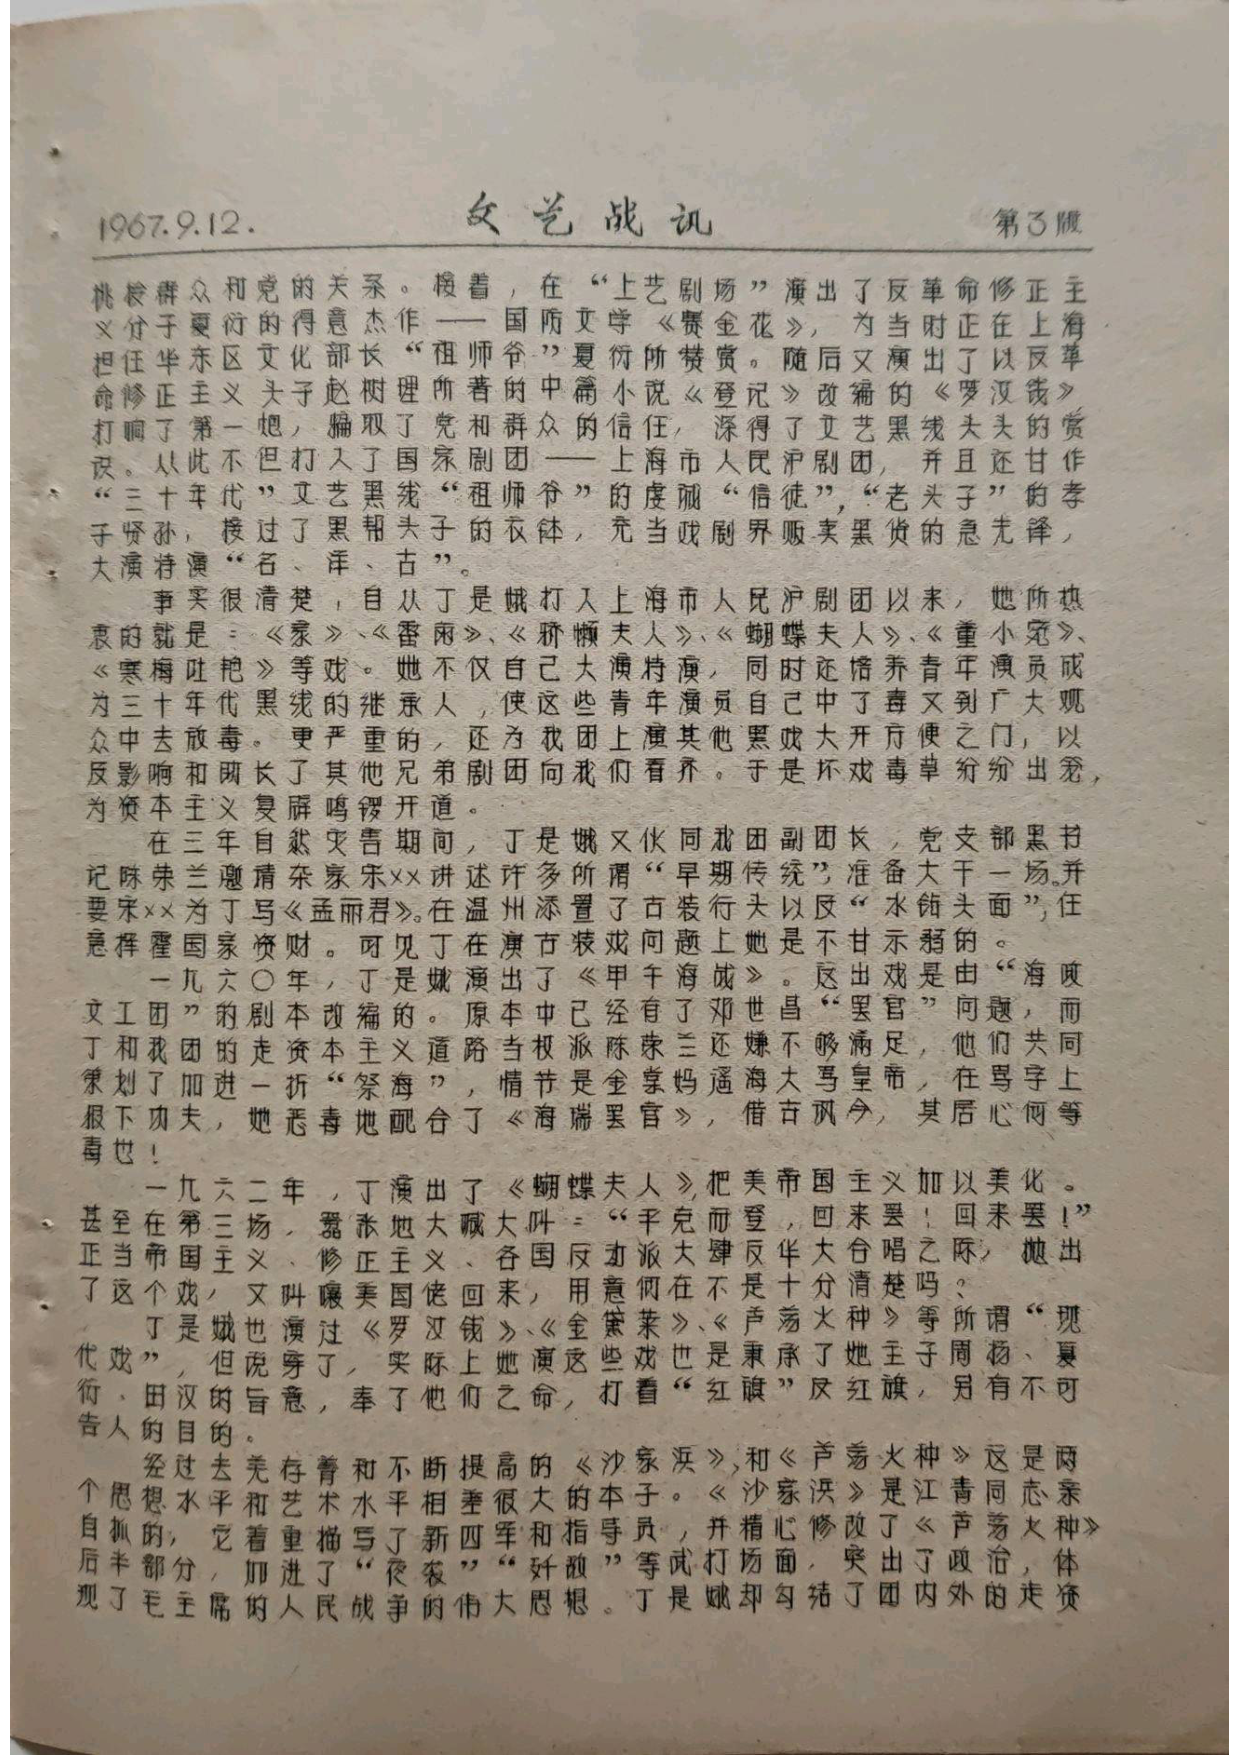 1967.9.12.
文艺战讯
第3版
挑拨群众和党的关系。接着，在“上艺剧场”演出了反革命修正主
义分子夏衍的得意杰作——国防文学《赛金花》，为当时正在上海
担任华东区文化部长“祖师爷”夏衍所赞赏。随后又演出了以反革
命修正主义头子赵树理所著的中篇小说《登记》改编的《罗汉钱》，
打响了第一炮，骗取了党和群众的信任，深得了文艺黑线头头的赏
识。从此不但打入了国家剧团——上海市人民沪剧团，并且还甘作
“三十年代”文艺黑线“祖师爷”的虔诚“信徒”，“老头子”的孝
子贤孙，接过了黑帮头子的衣钵，充当戏剧界贩卖黑货的急先锋，
大演特演“名、洋、古”。
事实很清楚，自从丁是娥打入上海市人民沪剧团以来，她所热
衷的就是：《家》、《雷雨》、《骄懒夫人》、《蝴蝶夫人》、《董小宛》、
《寒梅吐艳》等戏。她不仅自己大演特演，同时还培养青年演员成
为三十年代黑线的继承人，使这些青年演员自己中了毒又到广大观
众中去放毒。更严重的，还为我团上演其他黑戏大开方便之门，以
及影响和助长了其他兄弟剧团向我们看齐。于是坏戏毒草纷纷出笼，
为资本主义复辟鸣锣开道。
在三年自然灾害期间，丁是娥又伙同我团副团长，党支部黑书
记陈荣兰邀请杂家宋××讲述许多所谓“早期传统”，准备大干一场。并
要宋××为丁写《孟丽君》。在温州添置了古装行头以及“水钻头面”，任
意挥霍国家资财。可见丁在演古装戏问题上她是不甘示弱的。
一九六〇年，丁是娥演出了《甲午海战》。这出戏是由“海政
文工团”的剧本改编的。原本中已经有了邓世昌“罢官”问题，而
丁和我团的走资本主义道路当权派陈荣兰还嫌不够满足，他们共同
策划了加进一折“祭海”，情节是金堂妈遥海大骂皇帝，在骂字上
狠下功夫，她恶毒地配合了《海瑞罢官》，借古讽今，其居心何等
毒也！
一九六二年，丁演出了《蝴蝶夫人》，把美帝国主义加以美化。
甚至在第三场，嚣张地大喊大叫：“平克而登，回来罢！回来罢！”
正当帝国主义、修正主义、各国反动派大肆反华大合唱之际，抛出
了这个戏，又叫嚷美国佬回来，用意何在不是十分清楚吗？
丁是娥也演过《罗汉钱》、《金黛莱》、《芦荡火种》等所谓“现
代戏”，但说穿了，实际上她演这些戏也是秉承了她主子周扬、夏
衍、田汉的旨意，奉了他们之命，打着“红旗”反红旗，另有不可
告人的目的。
经过去芜存菁和不断提高的《沙家浜》，和《芦荡火种》这是两
个思想水平和艺术水平相差很大的本子。《沙家浜》是江青同志亲
自抓的，它着重描写了新四军和指导员，并精心修改了《芦荡火种》
后半部分，加进了“夜袭”“歼敌”等武打场面，突出了政治，体
现了毛主席的人民战争的伟大思想。丁是娥却勾结了团内外的走资